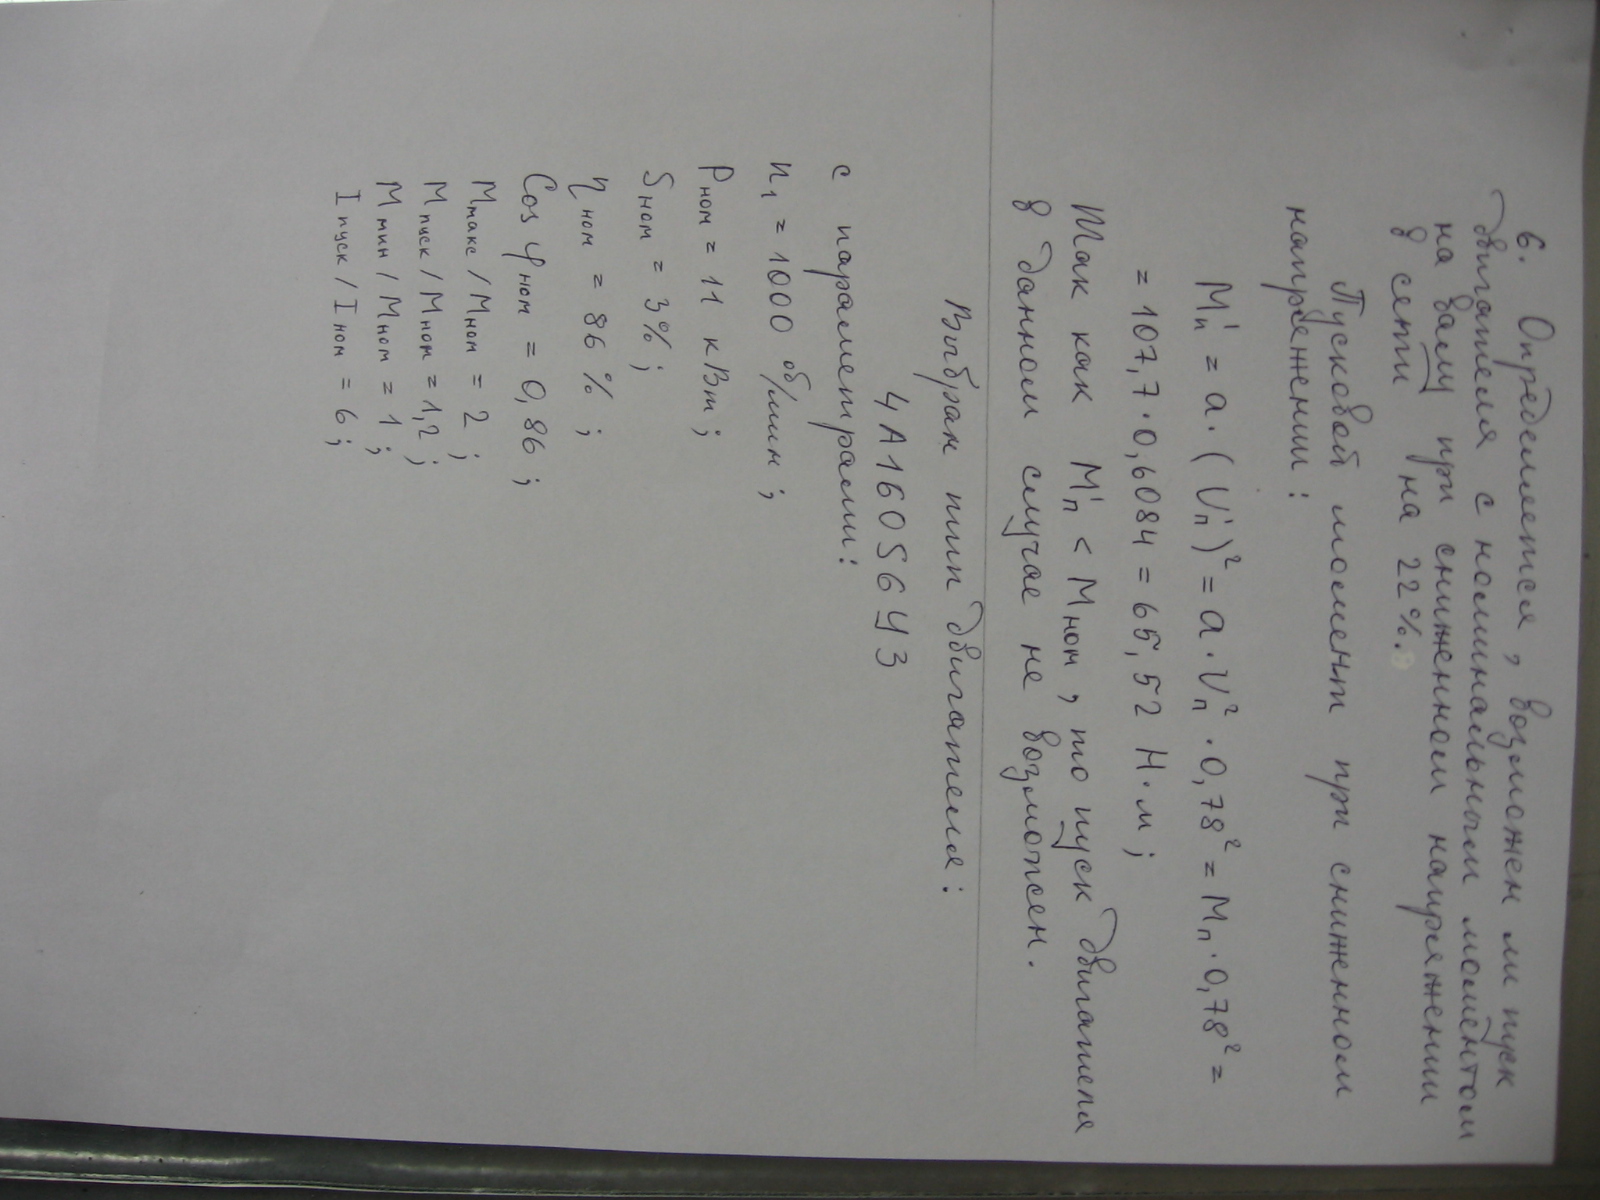 6. Определяется, возможен ли пуск
двигателя с номинальным моментом
на валу при сниженном напряжении
в сети на 22%.
Пусковой момент при сниженном
напряжении:
M'п = a·(U'п)² = a·Uп²·0,78² = Mп·0,78² =
= 107,7·0,6084 = 65,52 Н·м;
Так как M'п < Mном, то пуск двигателя
в данном случае не возможен.
Выбран тип двигателя:
4А160S6У3
с параметрами:
n₁ = 1000 об/мин;
Pном = 11 кВт;
Sном = 3%;
ηном = 86%;
Cos φном = 0,86;
Mмакс/Mном = 2;
Mпуск/Mном = 1,2;
Mмин/Mном = 1;
Iпуск/Iном = 6;